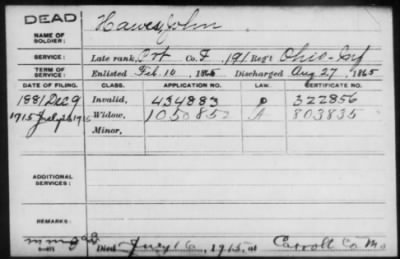 DEAD
NAME OF SOLDIER: Hawes, John
SERVICE: Late rank, Pvt Co. F, 191 Reg't Ohio Inf
TERM OF SERVICE: Enlisted Feb 10, 1865 Discharged Aug 27, 1865
DATE OF FILING. CLASS. APPLICATION NO. LAW. CERTIFICATE NO.
1881 Dec 9 Invalid, 434883 322856
1915 Widow, 1050852 A 803835
Minor,
ADDITIONAL SERVICES:
REMARKS:
Died 16, 1915, at Carroll Co Mo